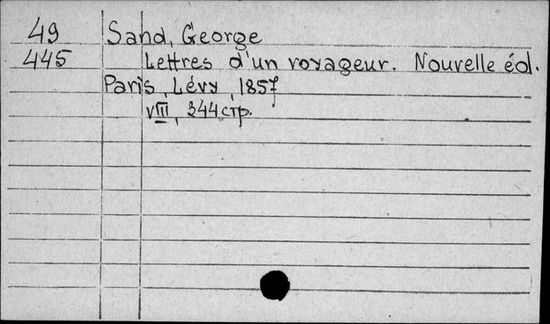 49 Sand, George
445 Lettres d'un voyageur. Nouvelle éd.
Paris, Lévy, 1857
VIII, 344 стр.